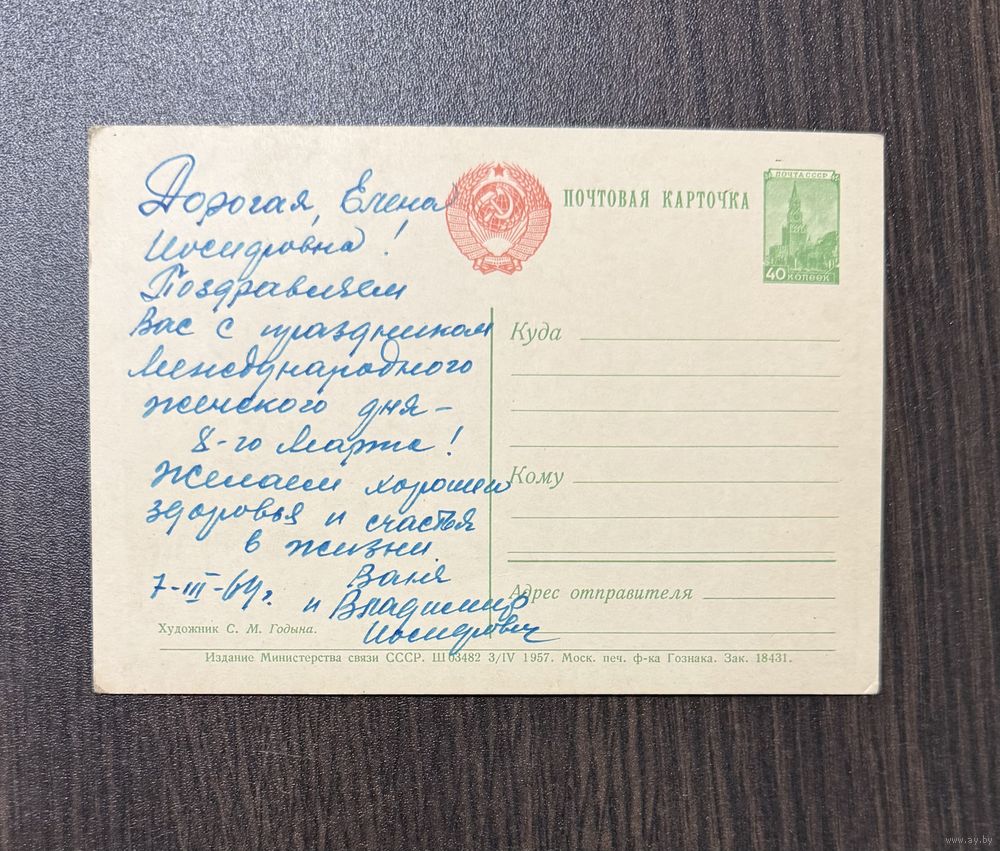 Дорогая, Елена
Иосифовна!
Поздравляем
Вас с праздником
Международного
женского дня –
8-го Марта!
Желаем хорошей
здоровья и счастья
в жизни.
7-III-64г. Ваня
и Владимир
Иосифович
Художник С. М. Годына.
ПОЧТОВАЯ КАРТОЧКА
ПОЧТА СССР
40 КОПЕЕК
Куда
Кому
Адрес отправителя
Издание Министерства связи СССР. Ш03482 3/IV 1957. Моск. печ. ф-ка Гознака. Зак. 18431.
www.ay.by